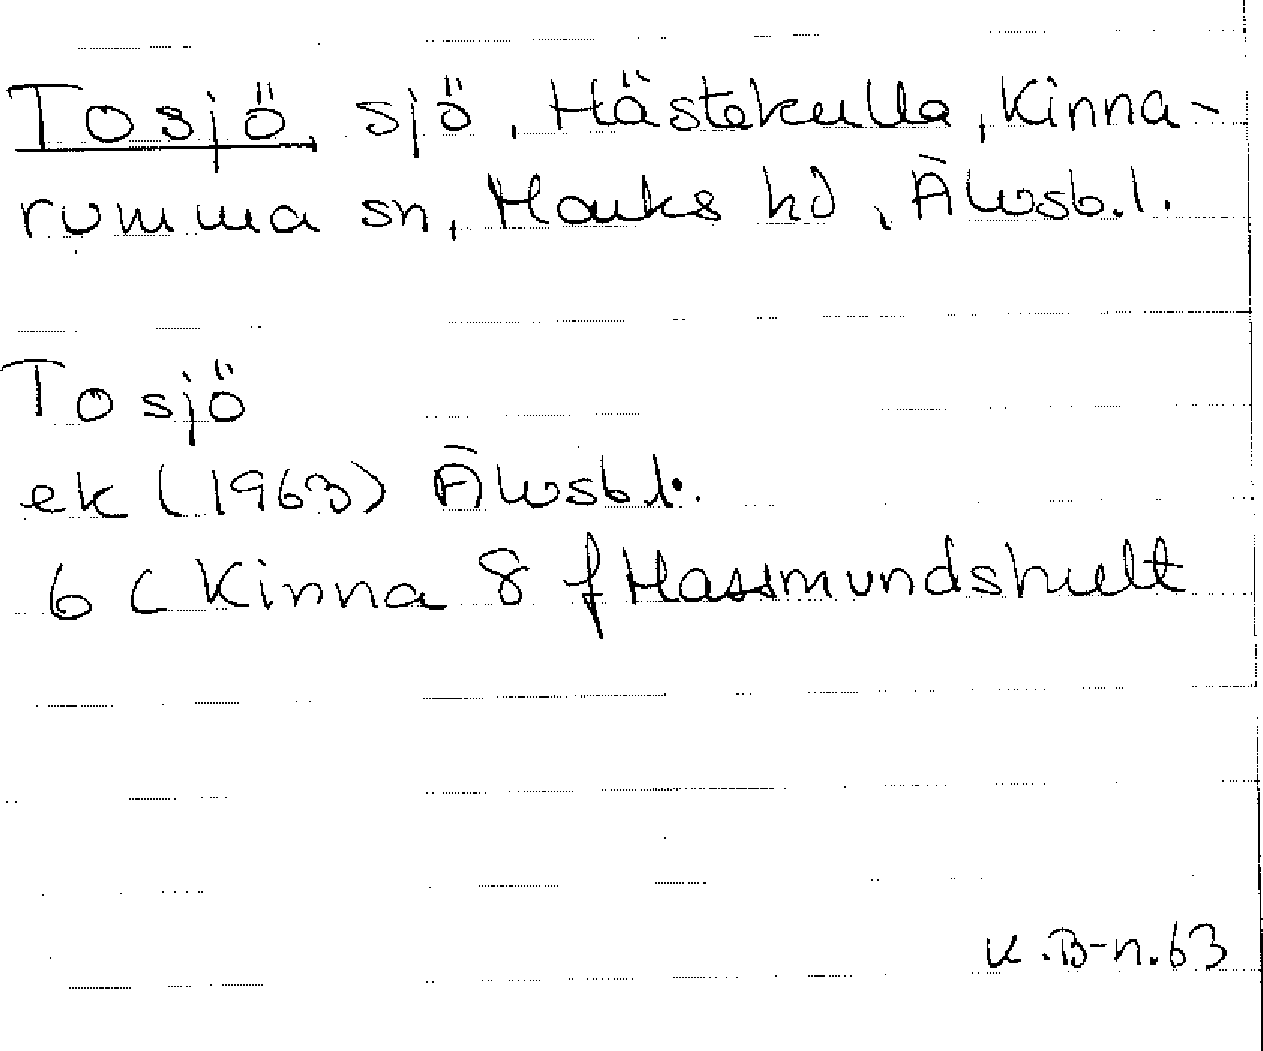 Tosjö, sjö, Hästekulla, Kinna-
rumma sn, Marks hd, Älvsb.l.
Tosjö
ek (1963) Älvsb.l.
6 C Kinna 8 f Hassmundshult
K.B-n.63